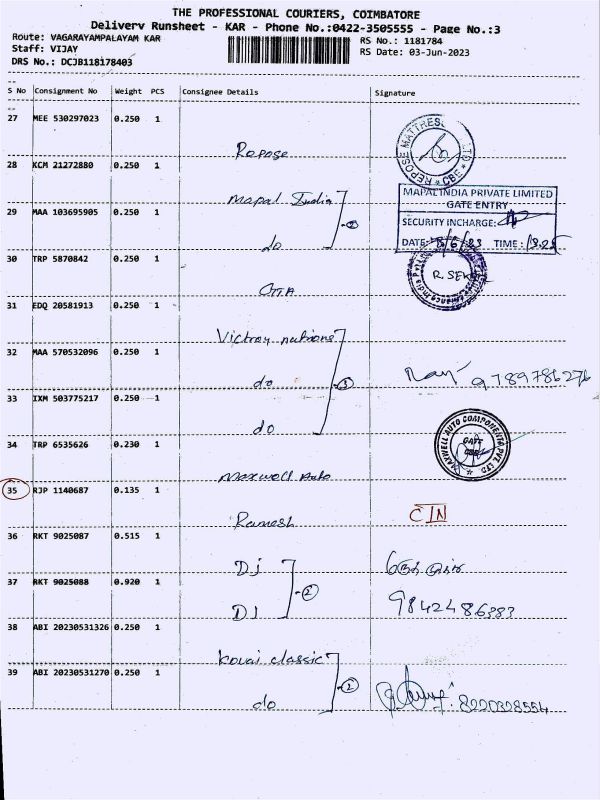 THE PROFESSIONAL COURIERS, COIMBATORE
Delivery Runsheet - KAR - Phone No.:0422-3505555 - Page No.:3
Route: VAGARAYAMPALAYAM KAR
RS No.: 1181784
Staff: VIJAY
RS Date: 03-Jun-2023
DRS No.: DCJB118178403
S No Consignment No Weight PCS Consignee Details Signature
27 MEE 530297023 0.250 1
Repose
REPOSE MATTRESS LTD CBE
28 KCM 21272880 0.250 1
Mapal India
2
MAPAL INDIA PRIVATE LIMITED
GATE ENTRY
SECURITY INCHARGE:
DATE: 3/6/23 TIME:
29 MAA 103695905 0.250 1
do
30 TRP 5870842 0.250 1
GTA
R. SEKAR
31 EDQ 20581913 0.250 1
Victroy nations
32 MAA 570532096 0.250 1
do
3
9789786276
33 IXM 503775217 0.250 1
do
34 TRP 6535626 0.230 1
Maxwell Auto
MAXWELL AUTO COMPONENTS PVT LTD
GATE
35 RJP 1140687 0.135 1
Ramesh
CIN
36 RKT 9025087 0.515 1
DJ
2
37 RKT 9025088 0.920 1
DJ
9842486383
38 ABI 20230531326 0.250 1
Kovai classic
39 ABI 20230531270 0.250 1
2
do
8220328554